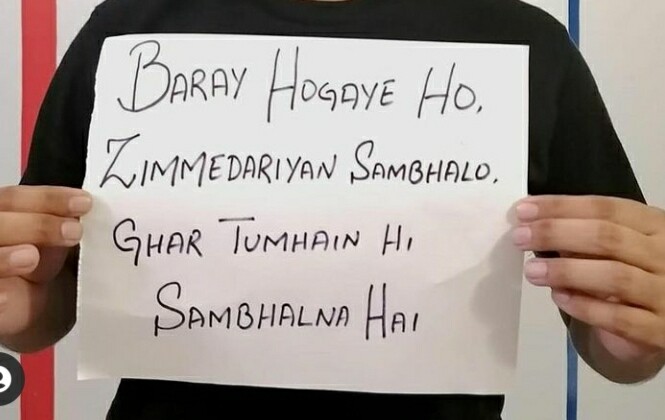 BARAY HOGAYE HO,
ZIMMEDARIYAN SAMBHALO.
GHAR TUMHAIN HI
SAMBHALNA HAI